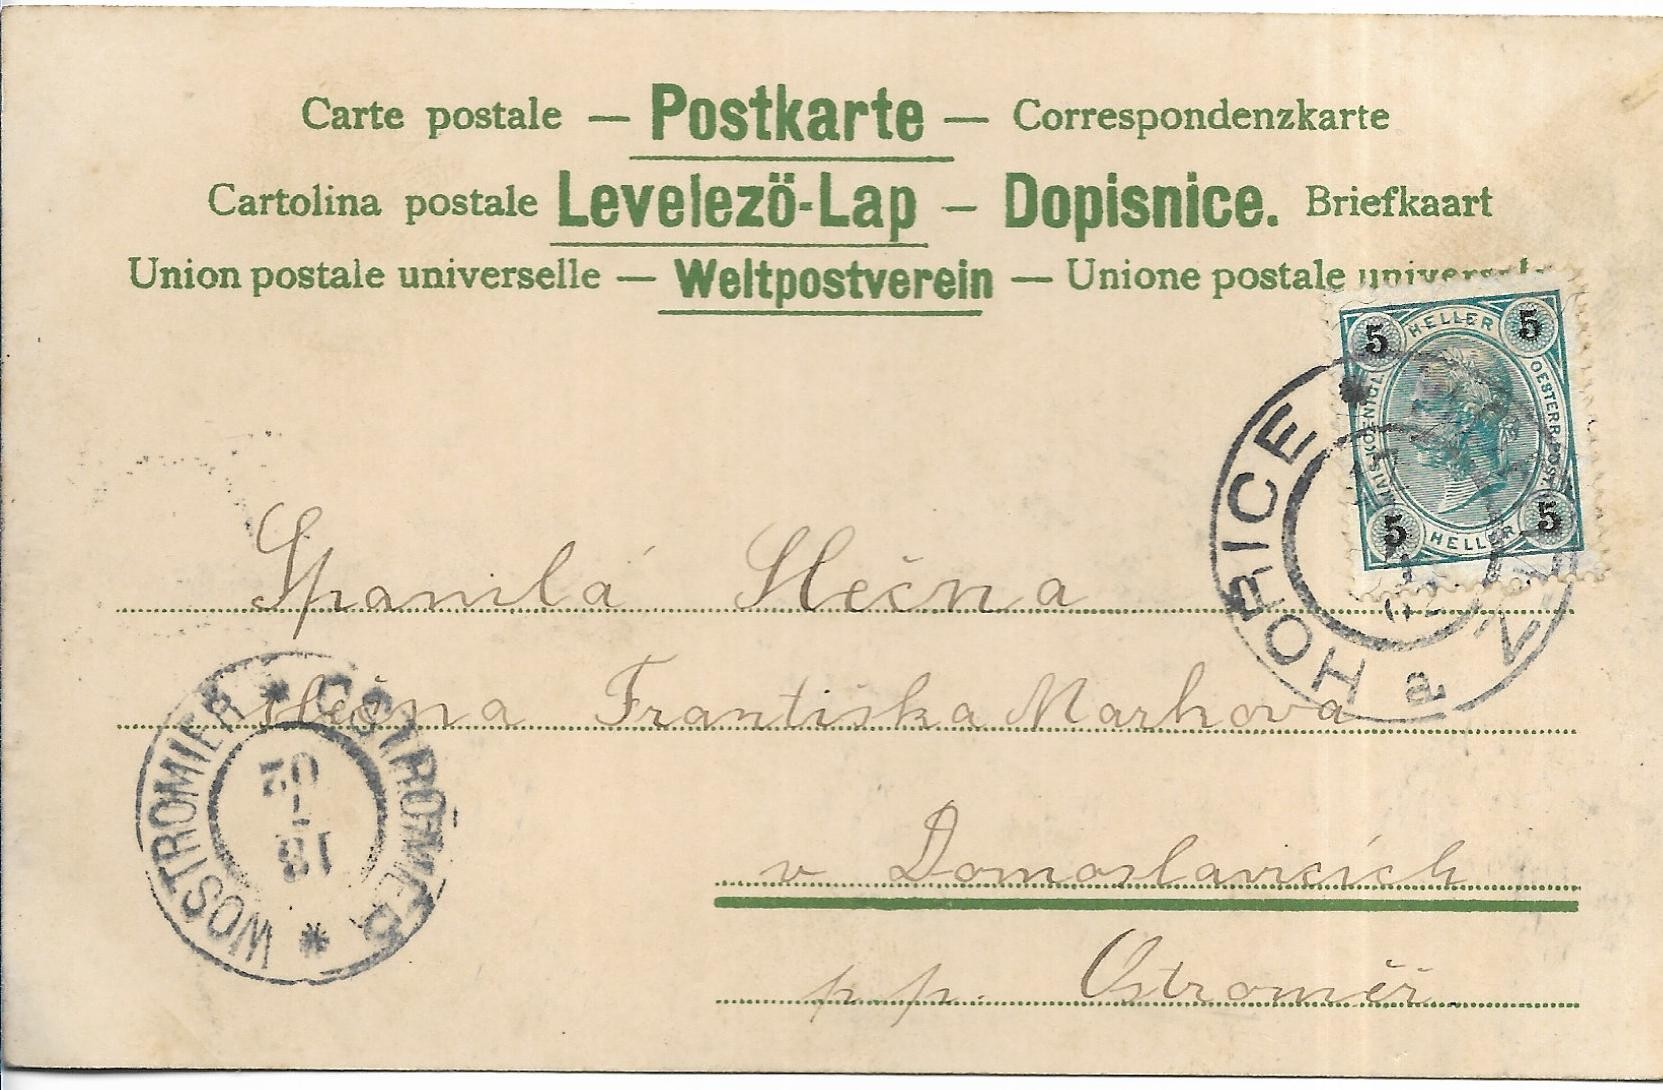 Carte postale — Postkarte — Correspondenzkarte
Cartolina postale Levelezö-Lap — Dopisnice. Briefkaart
Union postale universelle — Weltpostverein — Unione postale universale
5 HELLER 5
KAIS. KOENIGL. OESTERR. POST.
5 HELLER 5
HOŘICE
Spanilá Slečna
Slečna Frantiśka Markova
v Domoslavicích
p. p. Ostroměř.
WOSTROMĚŘ * OSTROMĚŘ *
18
02